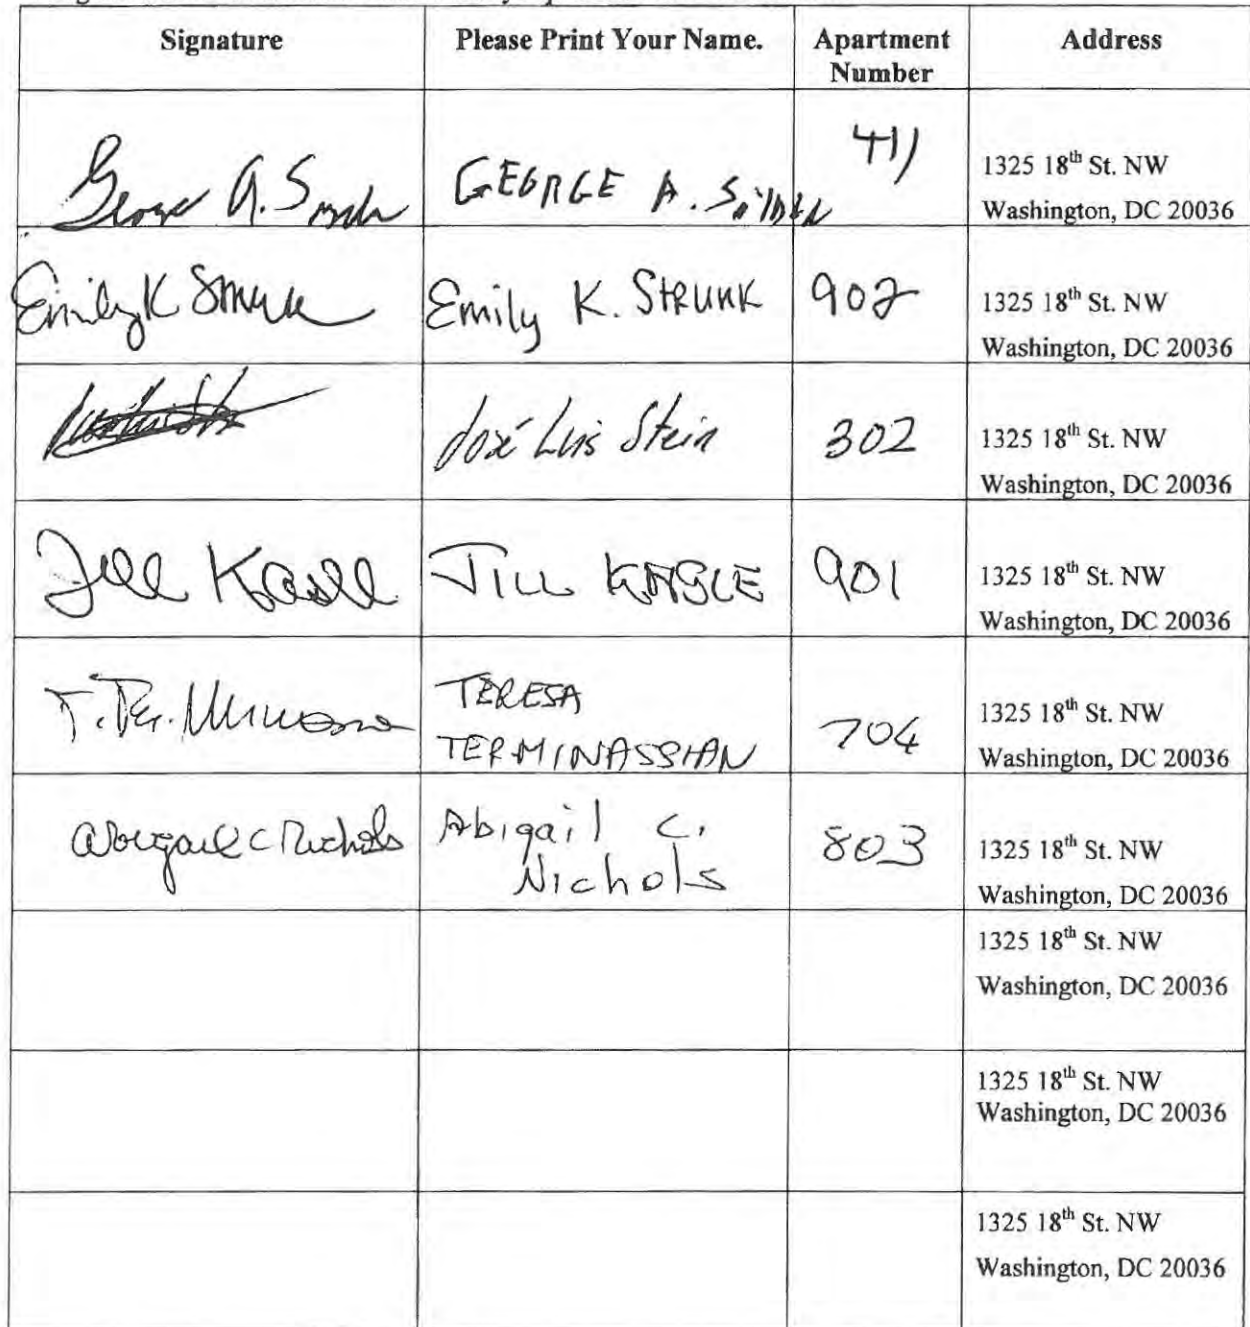 Signature Please Print Your Name. Apartment Number Address
George A. GEORGE A. 411 1325 18th St. NW
Washington, DC 20036
Emily K Strunk Emily K. STRUNK 902 1325 18th St. NW
Washington, DC 20036
José Luis Stein 302 1325 18th St. NW
Washington, DC 20036
Jill Kasle JILL KASLE 901 1325 18th St. NW
Washington, DC 20036
TERESA
TERMINASSIAN 704 1325 18th St. NW
Washington, DC 20036
Abigail C Nichols Abigail C.
Nichols 803 1325 18th St. NW
Washington, DC 20036
1325 18th St. NW
Washington, DC 20036
1325 18th St. NW
Washington, DC 20036
1325 18th St. NW
Washington, DC 20036